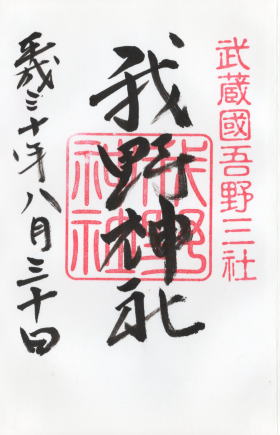 武蔵國吾野三社
我野神社
我野神社
平成三十年八月三十日